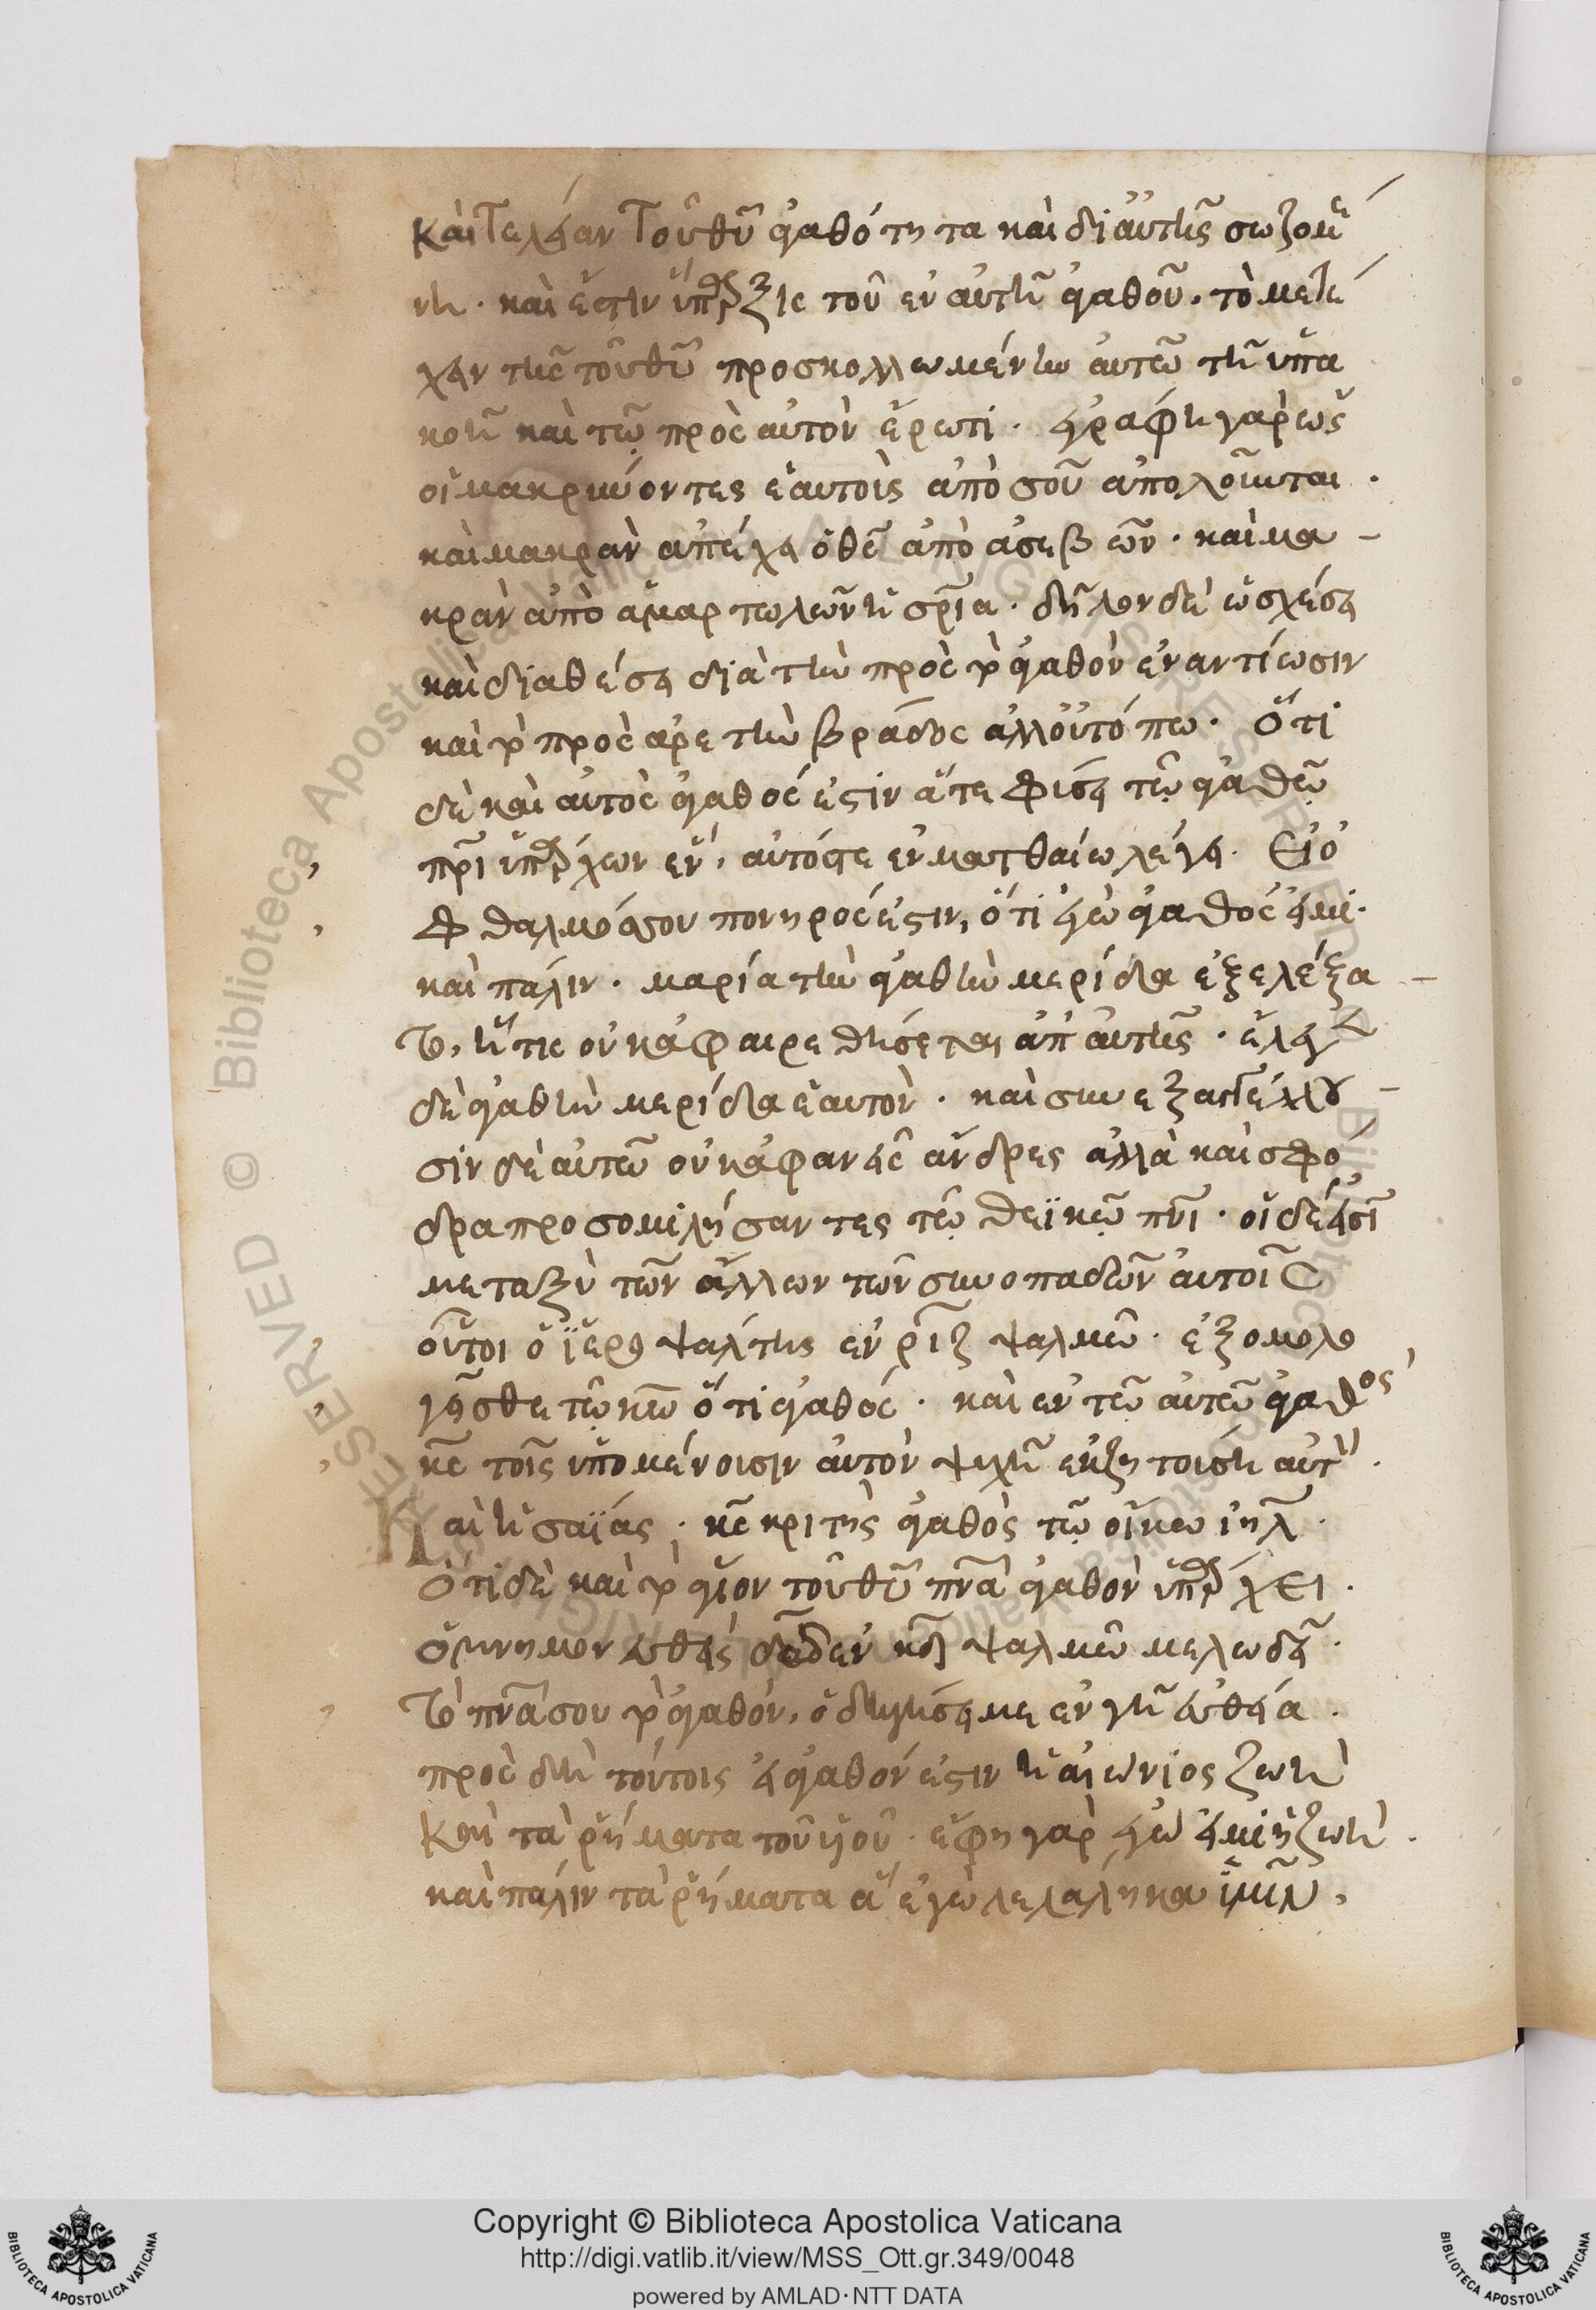 καὶ τελείαν τοῦ θῦ ἀγαθότητα καὶ δι αὐτῆς σωζομέ
νη· καὶ ἔστιν ὕπαρξις τοῦ ἐν αὐτῆ ἀγαθοῦ. τὸ μετέ
χειν τῆς τοῦ θῦ προσκολλωμένω αὐτῶ τῆ ὑπα
κοῆ καὶ τῶ πρὸς αὐτὸν ἔρωτι· γὰρ ὡς
οἱ μακρύνοντες ἑαυτοὺς ἀπὸ σοῦ ἀπολοῦνται.
καὶ μακρὰν ἀπέχει ὁ θς ἀπὸ ἀσεβῶν· καὶ μα-
κρὰν ἀπὸ ἁμαρτωλῶν ἡ σρία. δῆλον δὴ ὡς σχέσει
καὶ διαθέσει διὰ τὴν πρὸς τὸ ἀγαθὸν ἐναντίωσιν
καὶ τὸ πρὸς ἀρετὴν βράδος ἀλλ οὐ τόπω. Ὅτι
δὲ καὶ αὐτὸς ἀγαθός ἐστιν ἅτε φύσει τῶ ἀγαθῶ
πρὶ ὑπάρχων ἕν, αὐτός τε ἐν ματθαίω λέγει. Εἰ ὁ
ὀφθαλμός σου πονηρός ἐστιν, ὅτι ἐγὼ ἀγαθός εἰμι.
καὶ πάλιν. μαρία τὴν ἀγαθὴν μερίδα ἐξελέξα-
το, ἥτις οὐκ ἀφαιρεθήσεται ἀπ αὐτῆς. ἔλεγε
δὲ ἀγαθὴν μερίδα ἑαυτόν. καὶ συνεξαγγέλλου-
σιν δὲ αὐτῶ οὐκ ἀφανεῖς ἄνδρες ἀλλὰ καὶ σφό
δρα προσομιλήσαντες τῶ θεϊκῶ πνὶ. οἱ δέ εἰσὶ
μεταξὺ τῶν ἄλλων τῶν συνοπαδῶν αὐτοῖς
οὗτοι ὁ ἱεροψάλτης ἐν ριζ ψαλμῶ. ἐξομολο
γεῖσθε τῶ κω ὅτι ἀγαθός. καὶ ἐν τῶ αὐτῶ ἀγαθος
κς τοῖς ὑπομένουσιν αὐτὸν ψυχῆ ἐκζητούση αὐτὸν.
Καὶ ἡσαΐας. κς κριτὴς ἀγαθὸς τῶ οἴκω ιηλ.
Ὅτι δὲ καὶ τὸ ἅγιον τοῦ θῦ πνα ἀγαθὸν ὑπάρχει.
ὁ μνημονευθεὶς δαδ ἐν ψαλμῶ μελωδεῖ.
Τὸ πνα σου τὸ ἀγαθόν, ὁδηγήσει με ἐν γῆ εὐθεία.
πρὸς δὴ τούτοις εἰ ἀγαθόν ἐστιν ἡ αἰώνιος ζωὴ
Καὶ τὰ ῥήματα τοῦ ἔφη γὰρ ἐγώ εἰμι ἡ ζωή.
καὶ πάλιν τὰ ῥήματα ἃ ἐγὼ λελάληκα ὑμῖν,
Copyright © Biblioteca Apostolica Vaticana
http://digi.vatlib.it/view/MSS_Ott.gr.349/0048
powered by AMLAD·NTT DATA
BIBLIOTECA APOSTOLICA VATICANA
BIBLIOTECA APOSTOLICA VATICANA